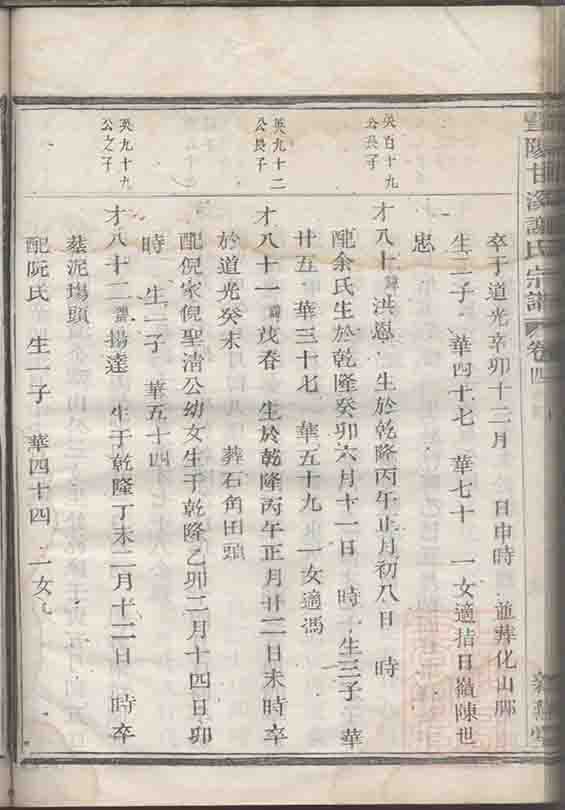 暨陽甘溪謝氏宗譜 卷四
卒于道光辛卯十二月 日申時 並葬化山
生二子 華四十七 華七十 一女適拮日嶺陳世
忠
英百十九
公長子
才八十諱洪恩 生於乾隆丙午正月初八日 時
配余氏生於乾隆癸卯六月十一日 時 生三子 華
廿五 華三十七 華五十九 一女適馮
英九十二
公長子
才八十一諱茂春 生於乾隆丙午正月廿二日未時卒
於道光癸未 葬石角田頭
配倪家倪聖清公幼女生于乾隆乙卯二月十四日卯
時 生一子 華五十四
英九十九
公之子
才八十二諱揚達 生于乾隆丁未二月十二日 時卒
墓泥塢頭
配阮氏 生一子 華四十四 一女